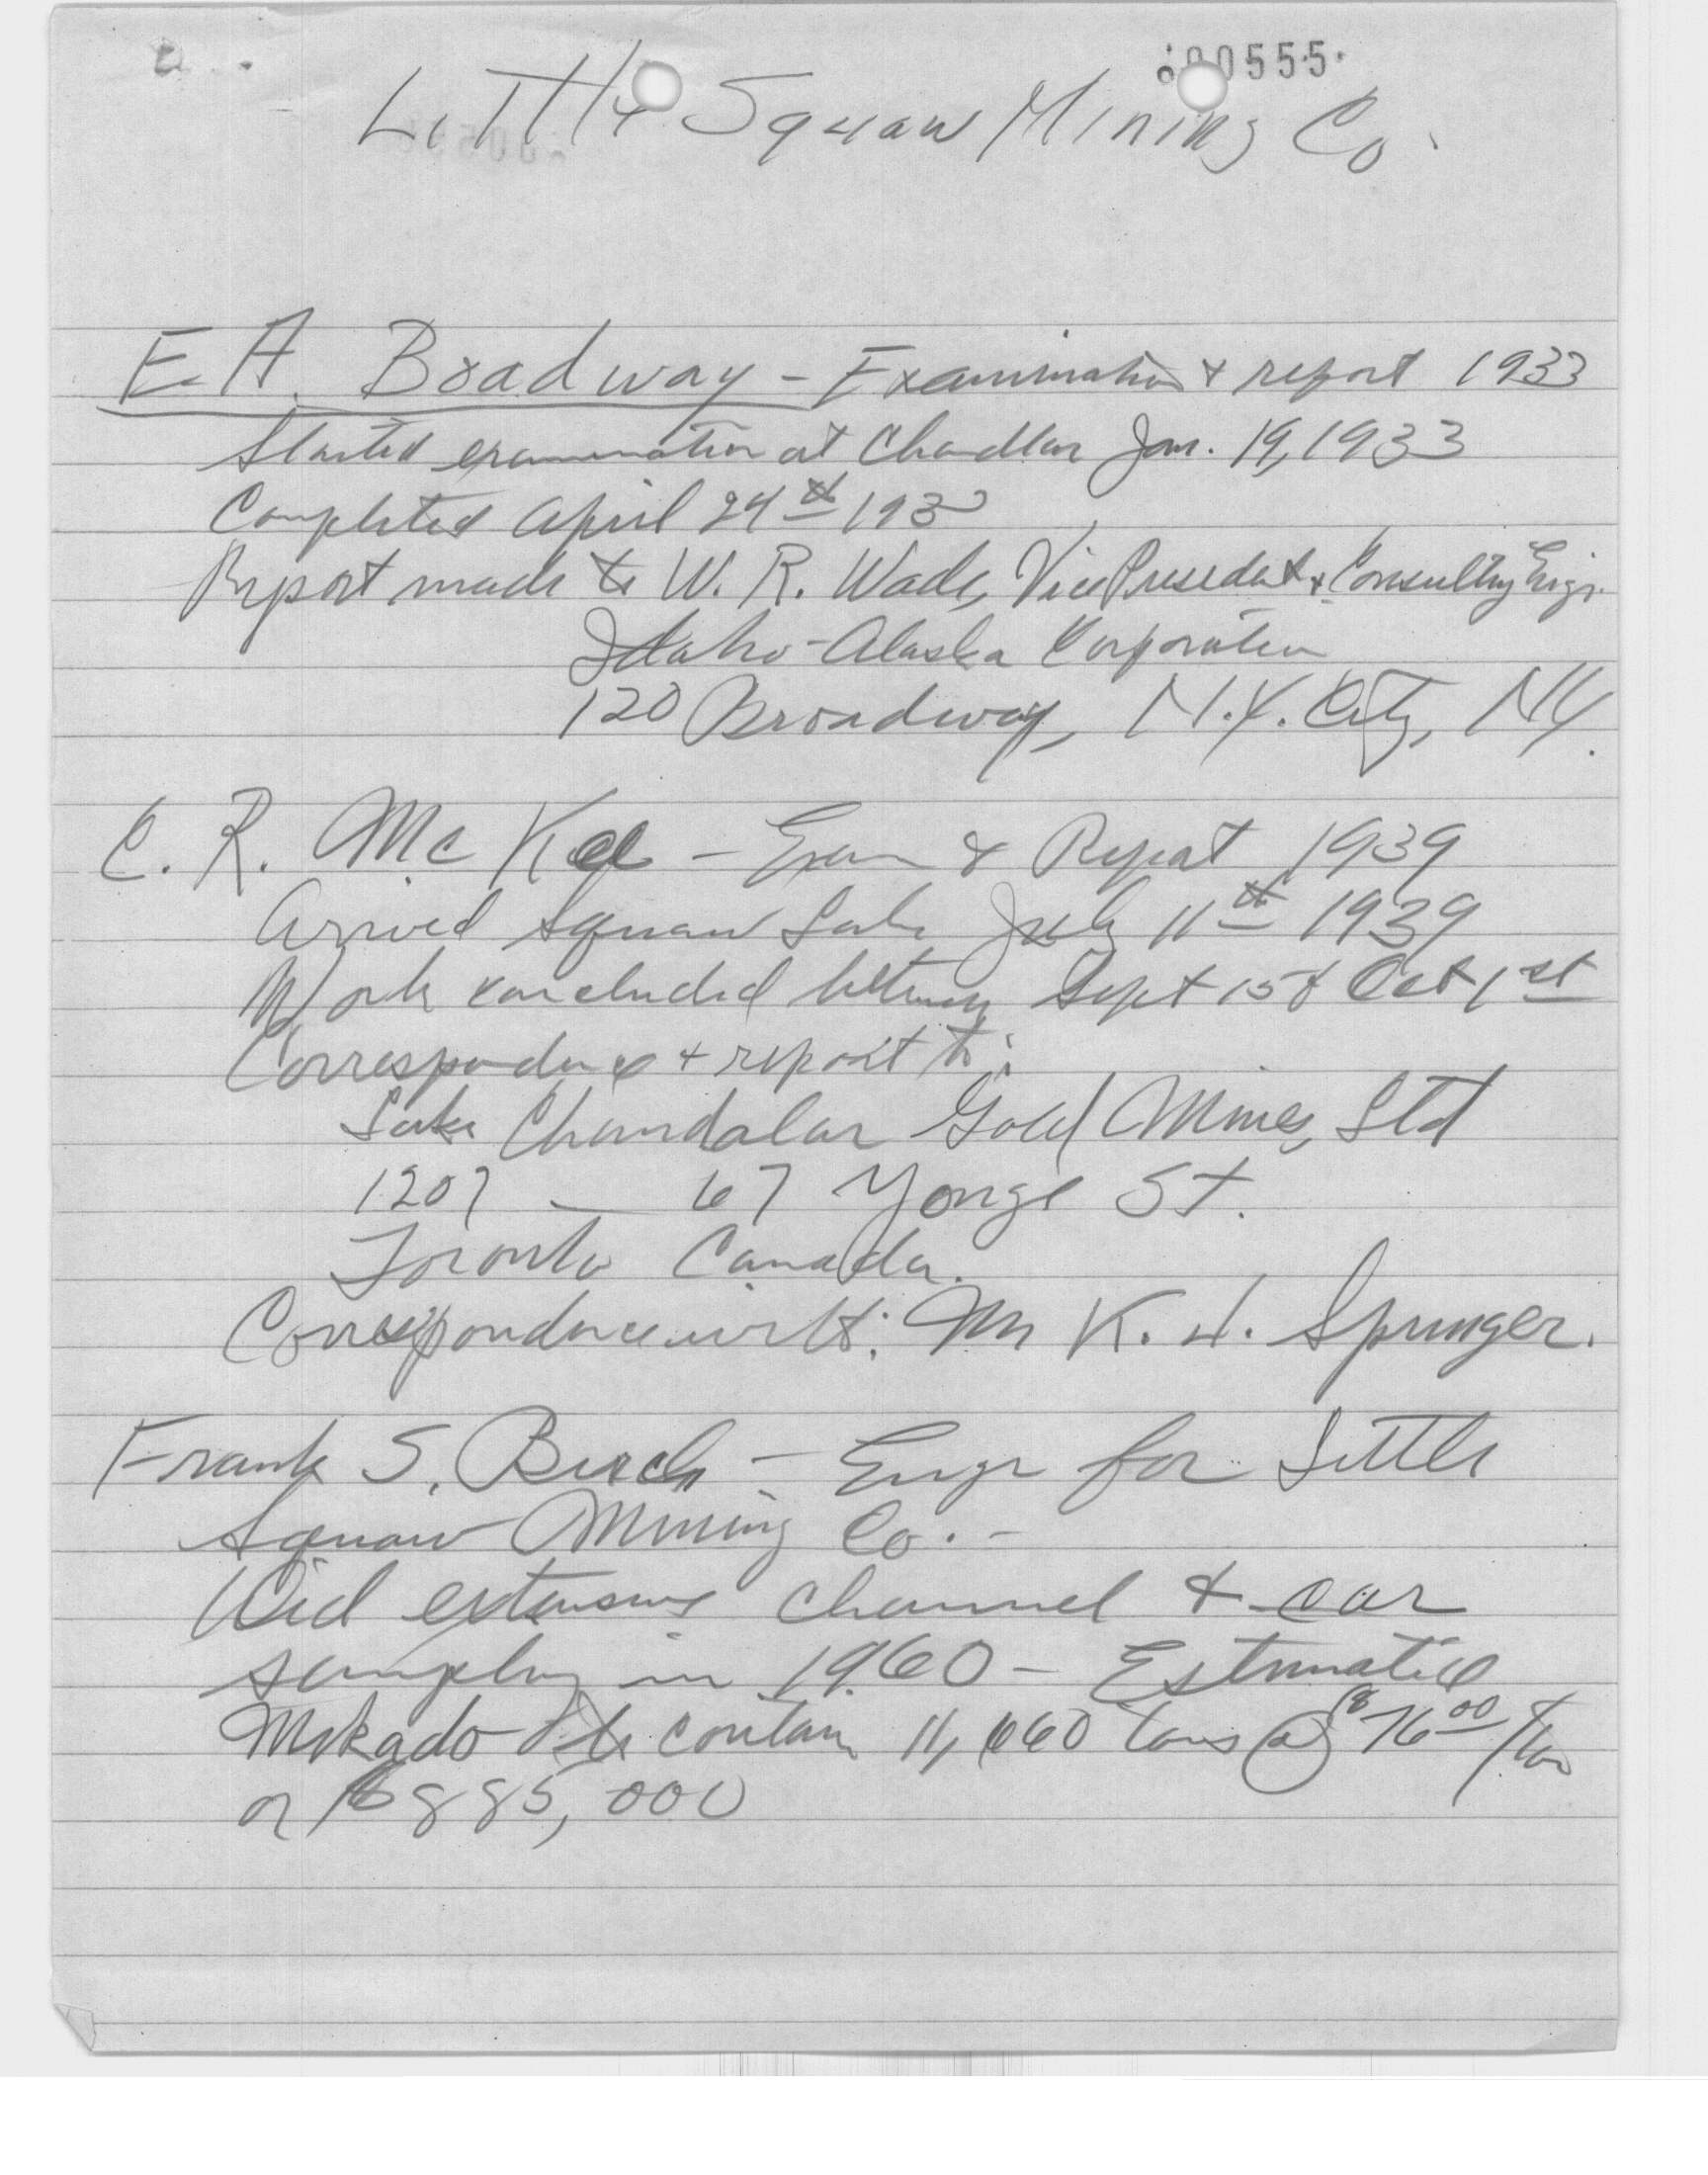 000555
Little Squaw Mining Co.
E. A. Broadway - Examination & report 1933
Started examination at Chandlar Jan. 19, 1933
Completed April 24th 1933
Report made to W. R. Wade, Vice President & Consulting Engr.
Idaho-Alaska Corporation
120 Broadway, N.Y. City, NY.
C. R. McKee - Exam & Report 1939
Arrived Squaw Lake July 11th 1939
Work concluded between Sept 15 & Oct 1st
Correspondence & report to:
Lake Chandalar Gold Mines, Ltd
1207 - 67 Yonge St.
Toronto Canada.
Correspondence with: Mr K. J. Springer.
Frank S. Birch - Engr for Little
Squaw Mining Co. -
Did extensive channel & car
sampling in 1960 - Estimated
Mikado to contain 11,660 tons @ $76.00/ton
or $885,000